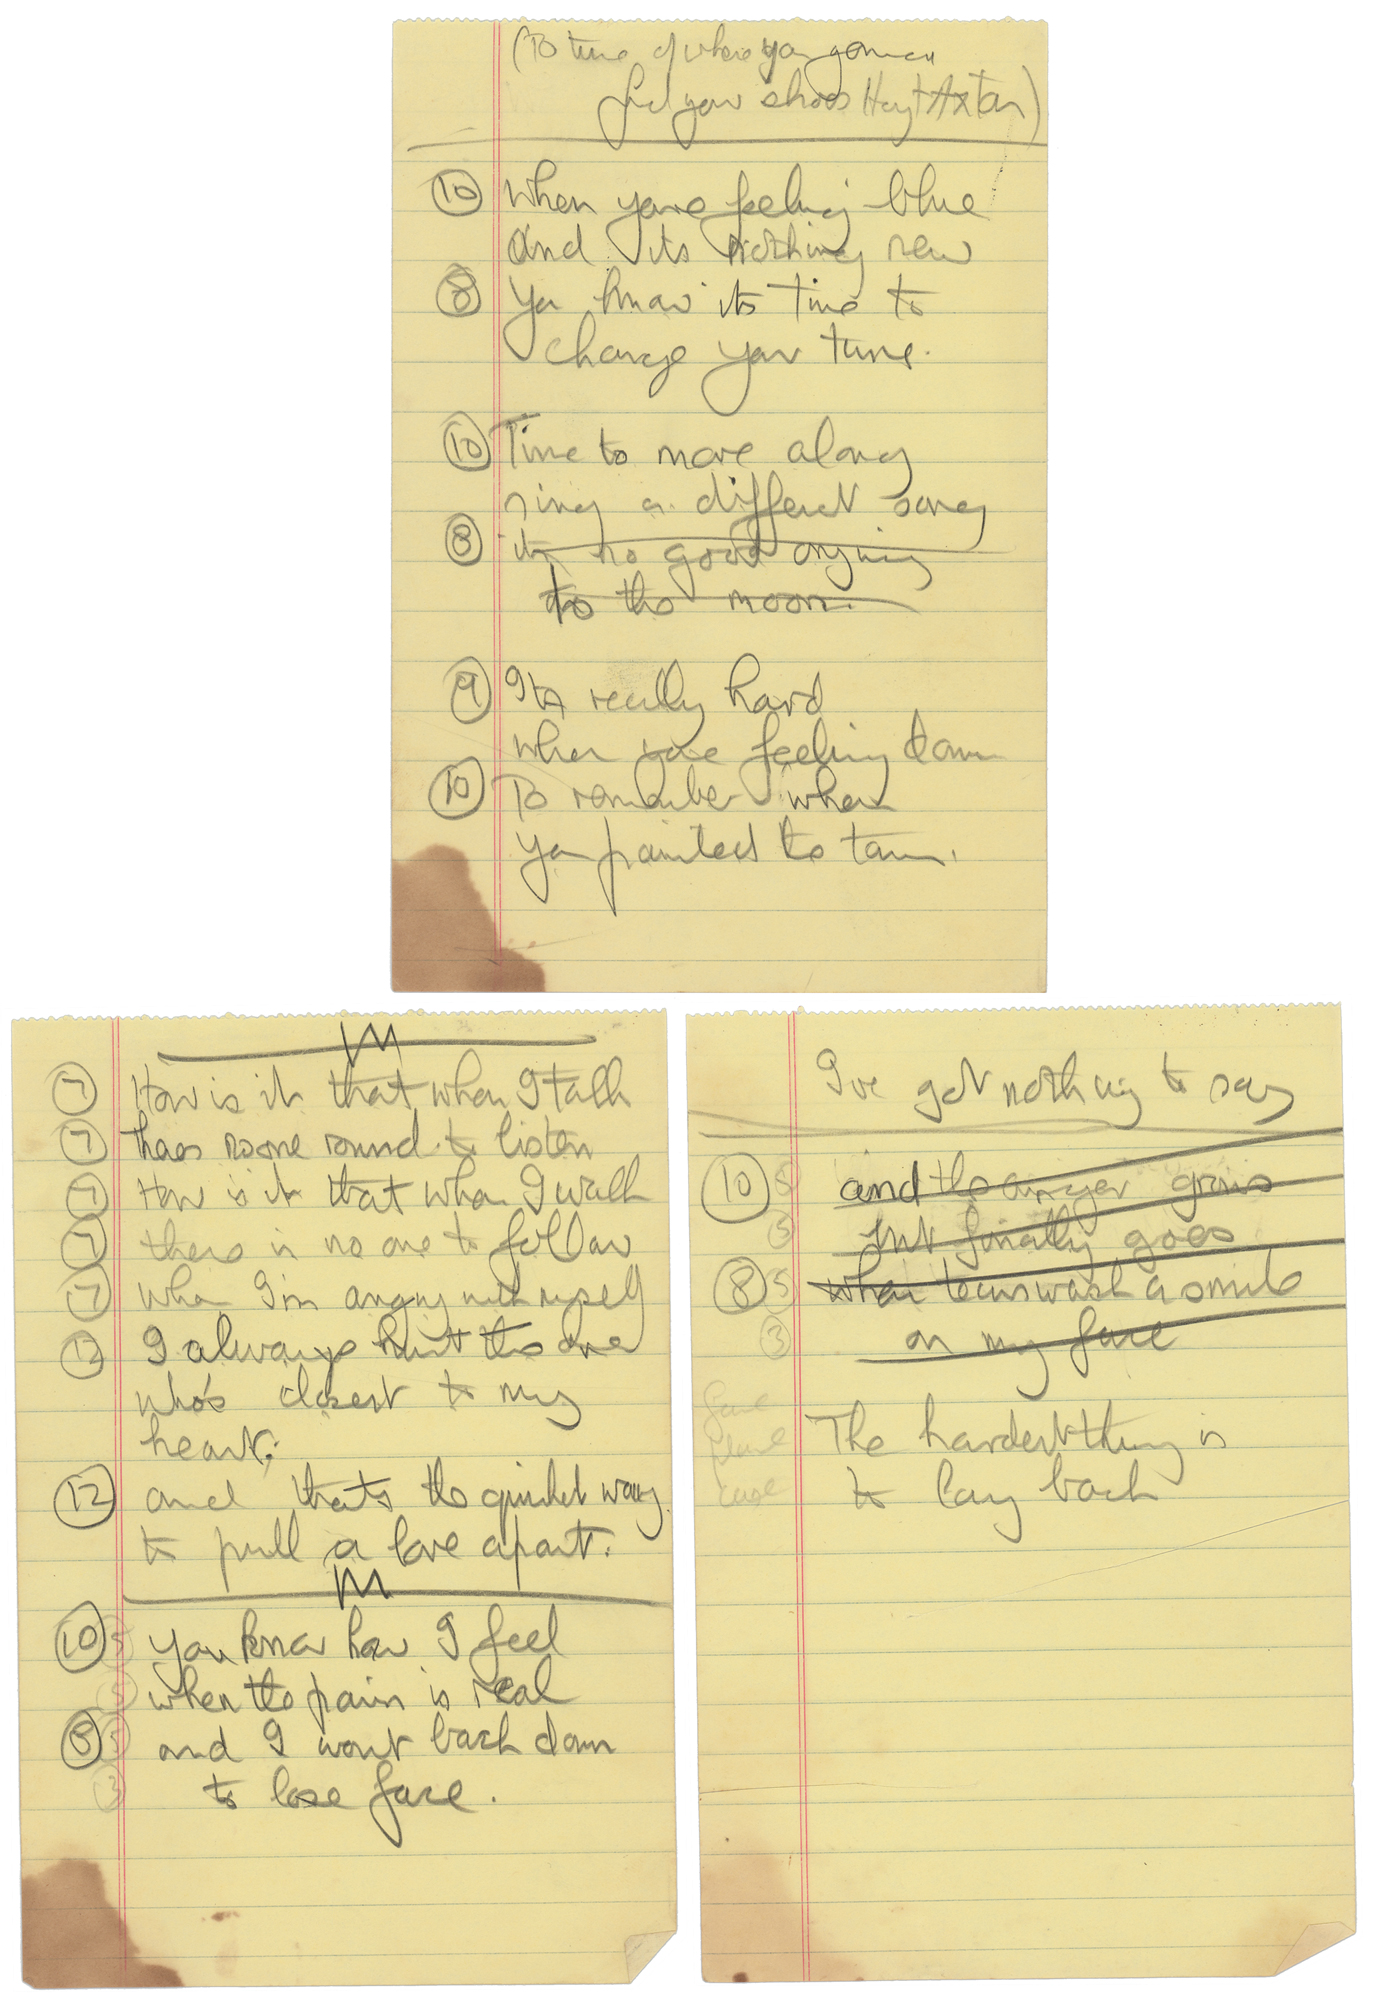 (To tune of where you gonna
find your shoes Hoyt Axton)
⑩ When youre feeling blue
and its nothing new
⑧ You know its time to
change your tune.
⑩ Time to move along
sing a different song
⑧ its no good crying
to the moon.
⑨ Its really hard
when youre feeling down
⑩ To remember when
you painted the town.
⑦ How is it that when I talk
⑦ theres noone round to listen
⑦ How is it that when I walk
⑦ there is no one to follow
⑦ When I'm angry with myself
⑫ I always hurt the one
who's closest to my
heart;
⑫ and that's the quickest way
to pull a love apart.
⑩ ⑤ you know how I feel
⑤ when the pain is real
⑧ ⑤ and I wont back down
③ to lose face.
I've got nothing to say
⑩ ⑤ and the anger grows
⑤ but finally goes
⑧ ⑤ when tears wash a smile
③ on my face
face
place
case
The hardest thing is
to lay back